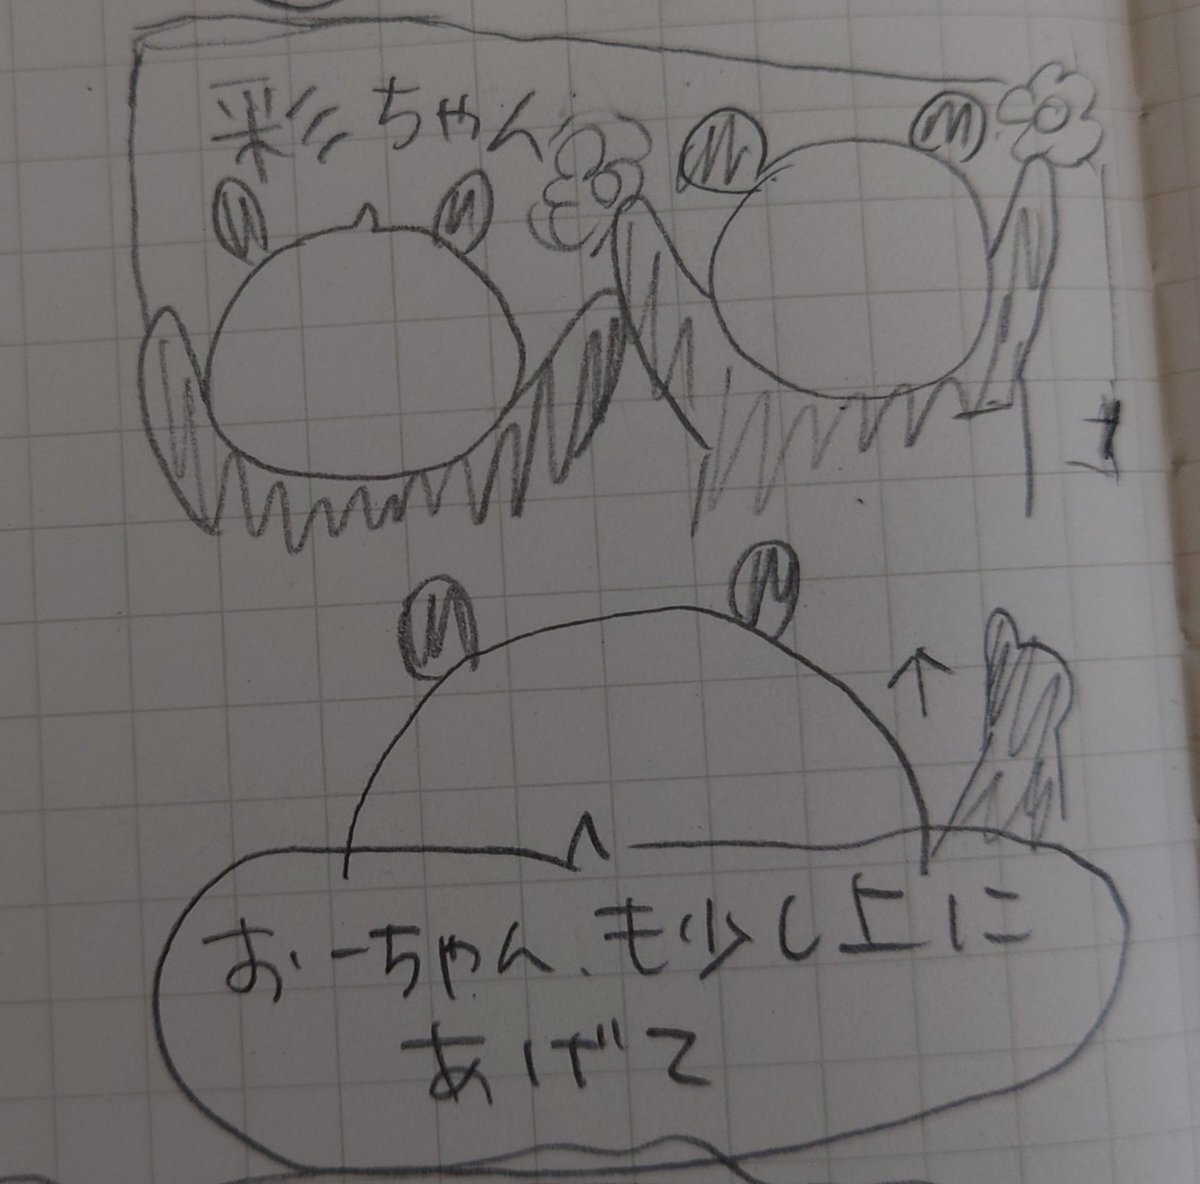 彩ちゃん
おーちゃん、も少し上に
あげて